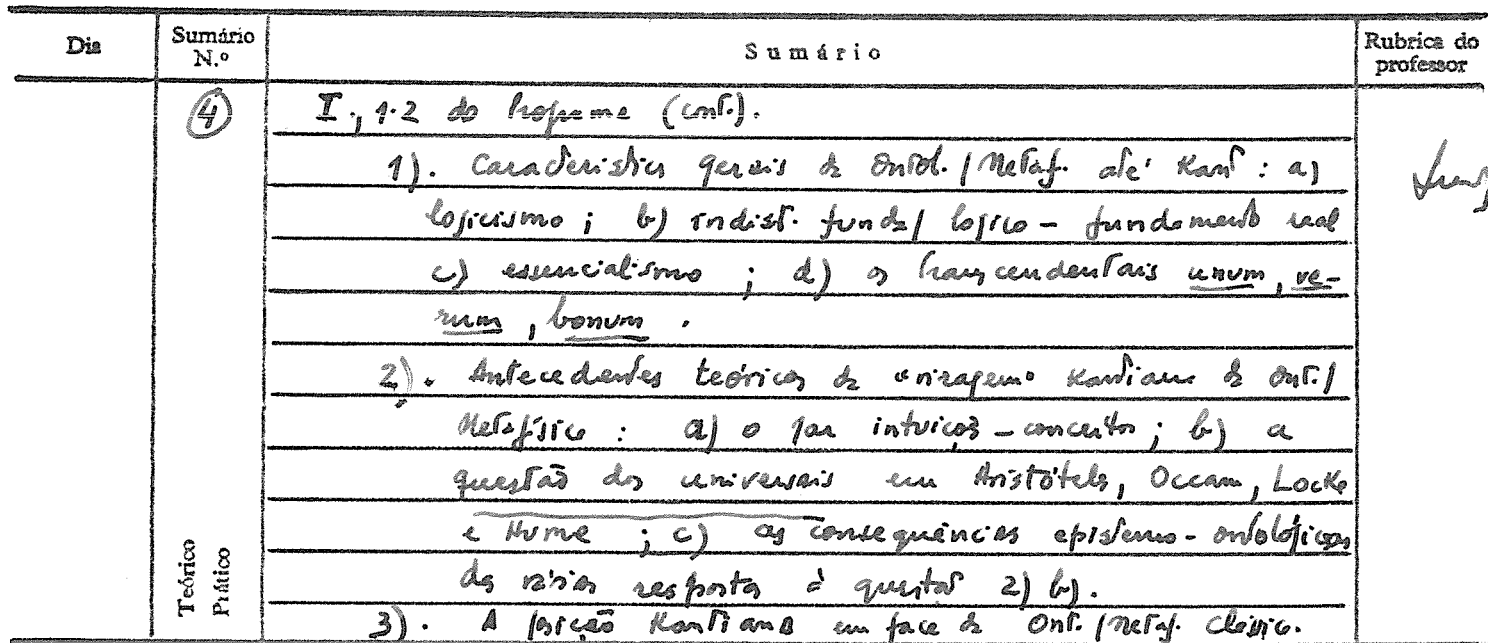 Dia
Sumário N.º
Sumário
Rubrica do professor
4
I., 1.2 do Programa (cont.).
1). Características gerais da Ontol./Metaf. até Kant : a)
logicismo ; b) indist. fundº/ lógico - fundamento real
c) essencialismo ; d) os transcendentais unum, ve-
rum, bonum .
2). Antecedentes teóricos da "viragem" Kantiana da Ont./
Metafísica : a) o par intuição - conceito ; b) a
questão dos universais em Aristóteles, Occam, Locke
e Hume ; c) as consequências epistemo-ontológicas
das várias respostas à questão 2) b).
3). A posição Kantiana em face da Ont./Metaf. Clássica.
Teórico
Prático